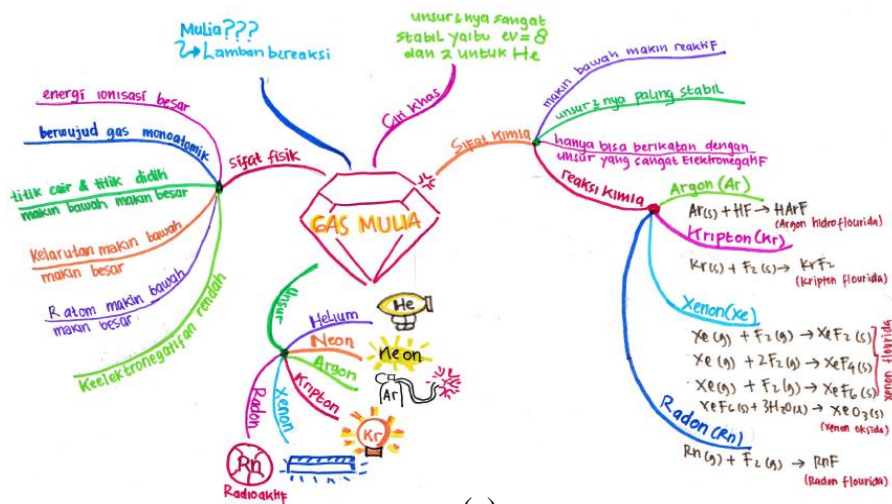 Mulia???
Lamban bereaksi
Ciri khas
unsur2nya sangat
stabil yaitu ev = 8
dan 2 untuk He
GAS MULIA
Sifat fisik
energi ionisasi besar
berwujud gas monoatomik
titik cair & titik didih
makin bawah makin besar
Kelarutan makin bawah
makin besar
R atom makin bawah
makin besar
Keelektronegatifan rendah
Sifat Kimia
makin bawah makin reaktif
unsur2nya paling stabil
hanya bisa berikatan dengan
unsur yang sangat Elektronegatif
reaksi Kimia
Argon (Ar)
Ar(s) + HF → HArF
(Argon hidroflourida)
Kripton (Kr)
Kr(s) + F2(s) → KrF2
(Kripton flourida)
Xenon (Xe)
Xe(g) + F2(g) → XeF2(s)
Xe(g) + 2F2(g) → XeF4(s)
Xe(g) + F2(g) → XeF6(s)
xenon flourida
XeF6(s) + 3H2O(l) → XeO3(s)
(xenon oksida)
Radon (Rn)
Rn(g) + F2(g) → RnF
(Radon flourida)
Unsur
Helium
He
Neon
Neon
Argon
Ar
Kripton
Kr
Xenon
Radon
Rn
Radioaktif